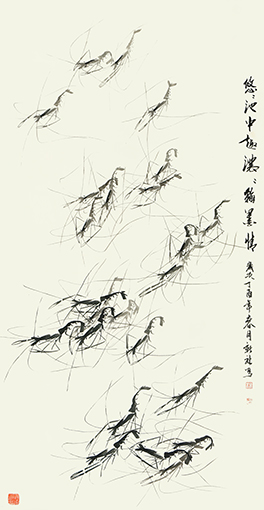 悠々池中趣濃々翰墨情
歲次丁酉年春月新桂寫